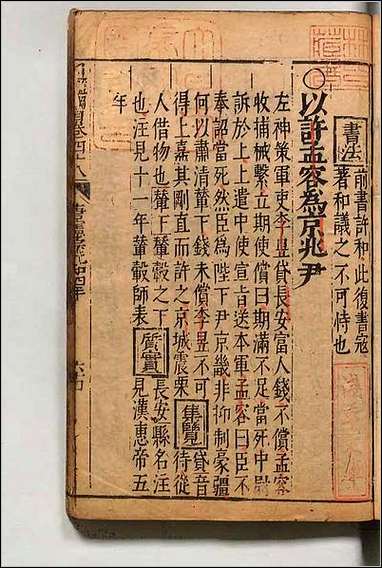 書法
前書許和此復書寇
著和議之不可恃也
○以許孟容爲京兆尹
左神策軍吏李昱貸長安富人錢不償孟容
收捕械繫立期使償曰期滿不足當死中尉
訴於上上遣中使宣旨送本軍孟容曰臣不
奉詔當死然臣爲陛下尹京畿非抑制豪彊
何以肅清輦下錢未償李昱不可
得上嘉其剛直而許之京城震栗
集覽
貸音
待從
人借物也輦下輦轂之下
也注見十一年輦轂師表
質實
長安縣名注
見漢惠帝五
年